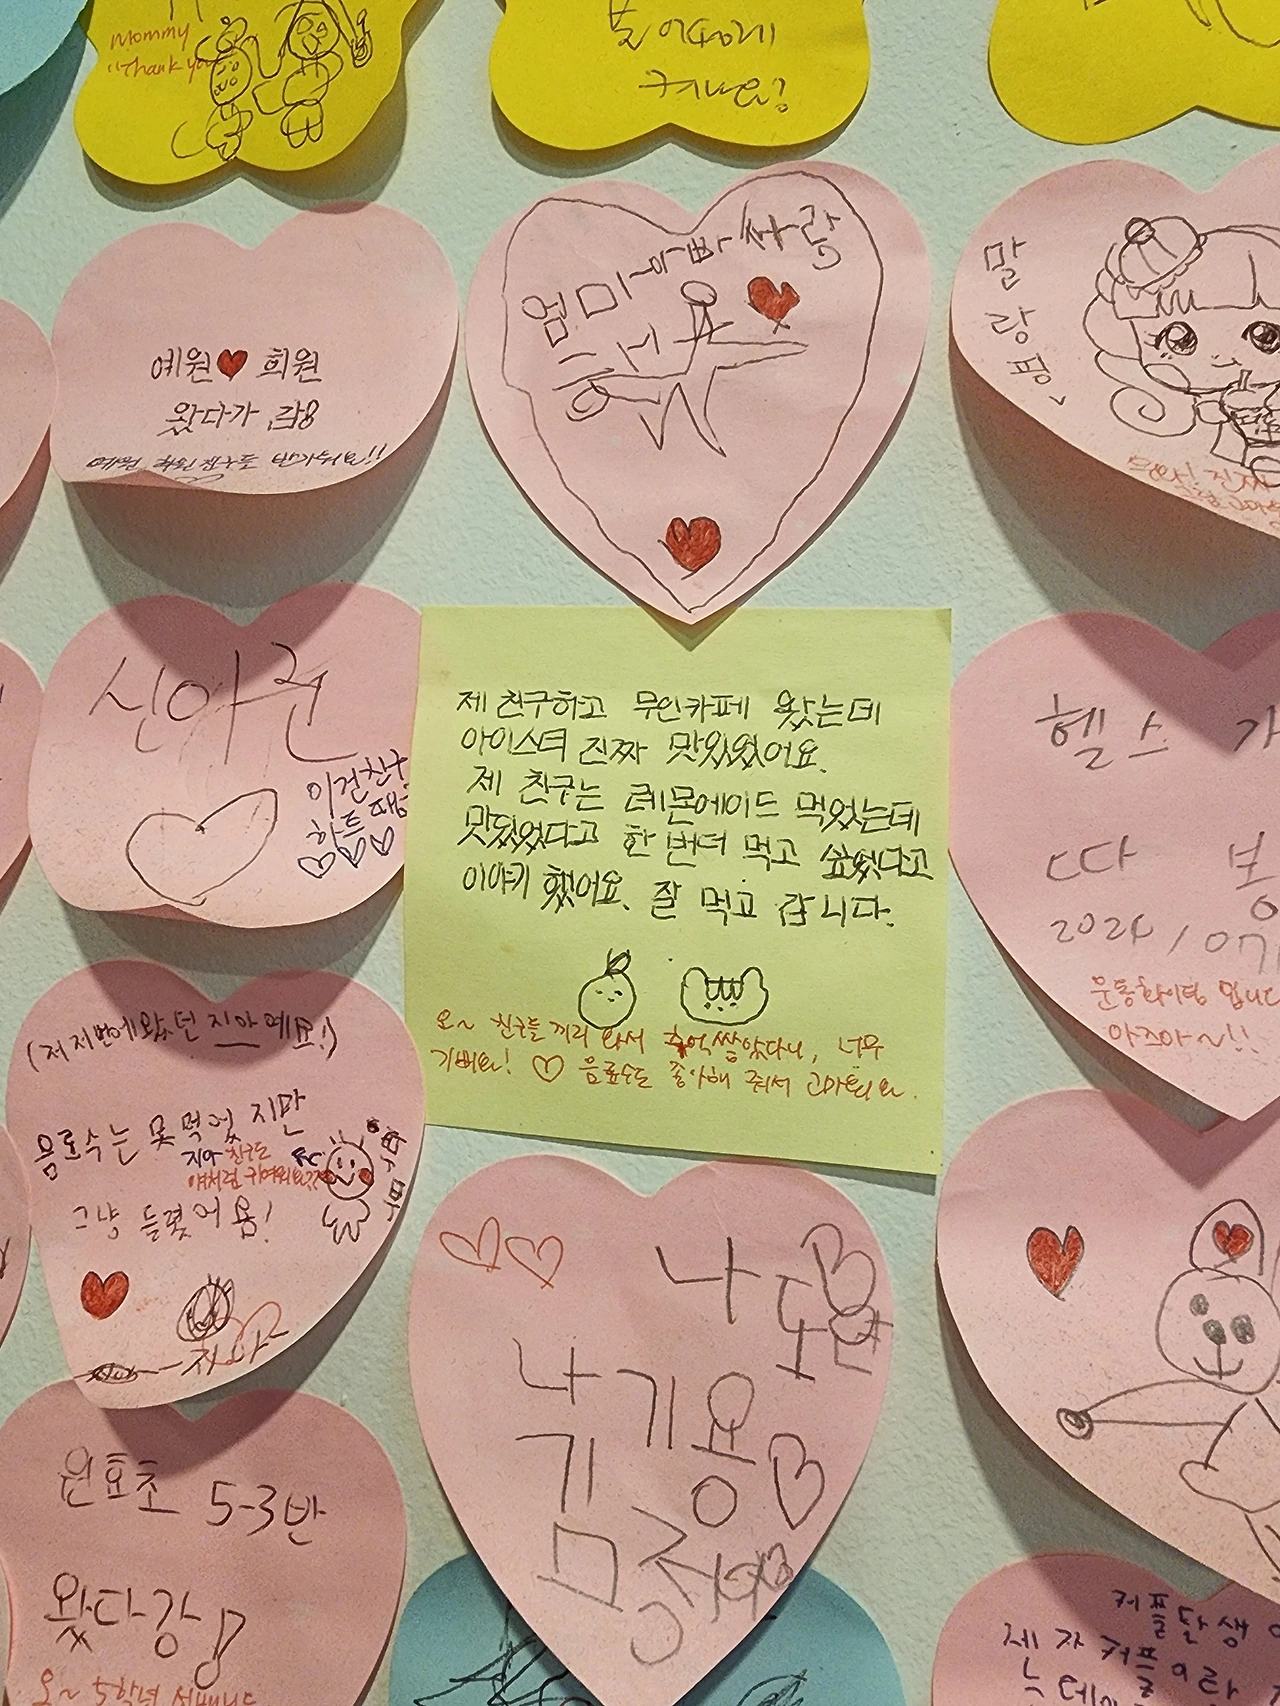 Mommy
Thank you
커나요?
예원♥희원
왔다가 감
예원 희원 친구들 반가워요!!
엄마아빠싸랑
말
랑
핑
신아린
이건친구
하트
제 친구하고 무인카페 왔는데
아이스티 진짜 맛있었어요.
제 친구는 레몬에이드 먹었는데
맛있었다고 한 번더 먹고 싶었다고
이야기 했어요. 잘 먹고 갑니다.
오~ 친구들 끼리 와서 추억쌓았다니, 너무
기뻐요! ♡ 음료수도 좋아해 줘서 고마워요.
헬스 가
따 봉
2024/07
운동화이팅 입니다
아즈아~!!
(저 저번에 왔던 지아예요!)
음료수는 못먹었지만
지아 친구도
얘처럼 귀여워요??
그냥 들렸어욤!
지아
나 또
나기요
원효초 5-3반
왔다강
오~ 5학년
커플탄생